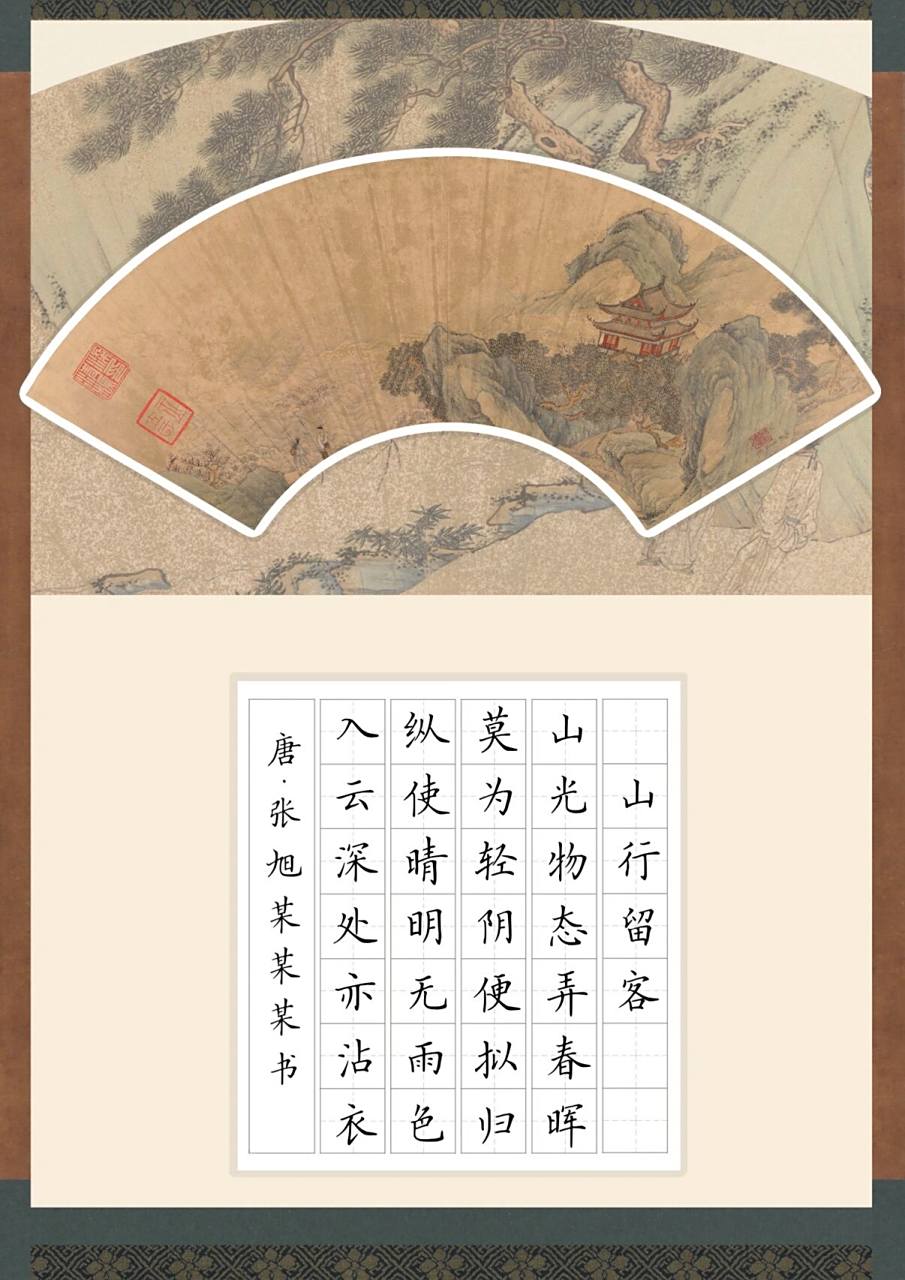 山行留客
山光物态弄春晖
莫为轻阴便拟归
纵使晴明无雨色
入云深处亦沾衣
唐·张旭某某某书